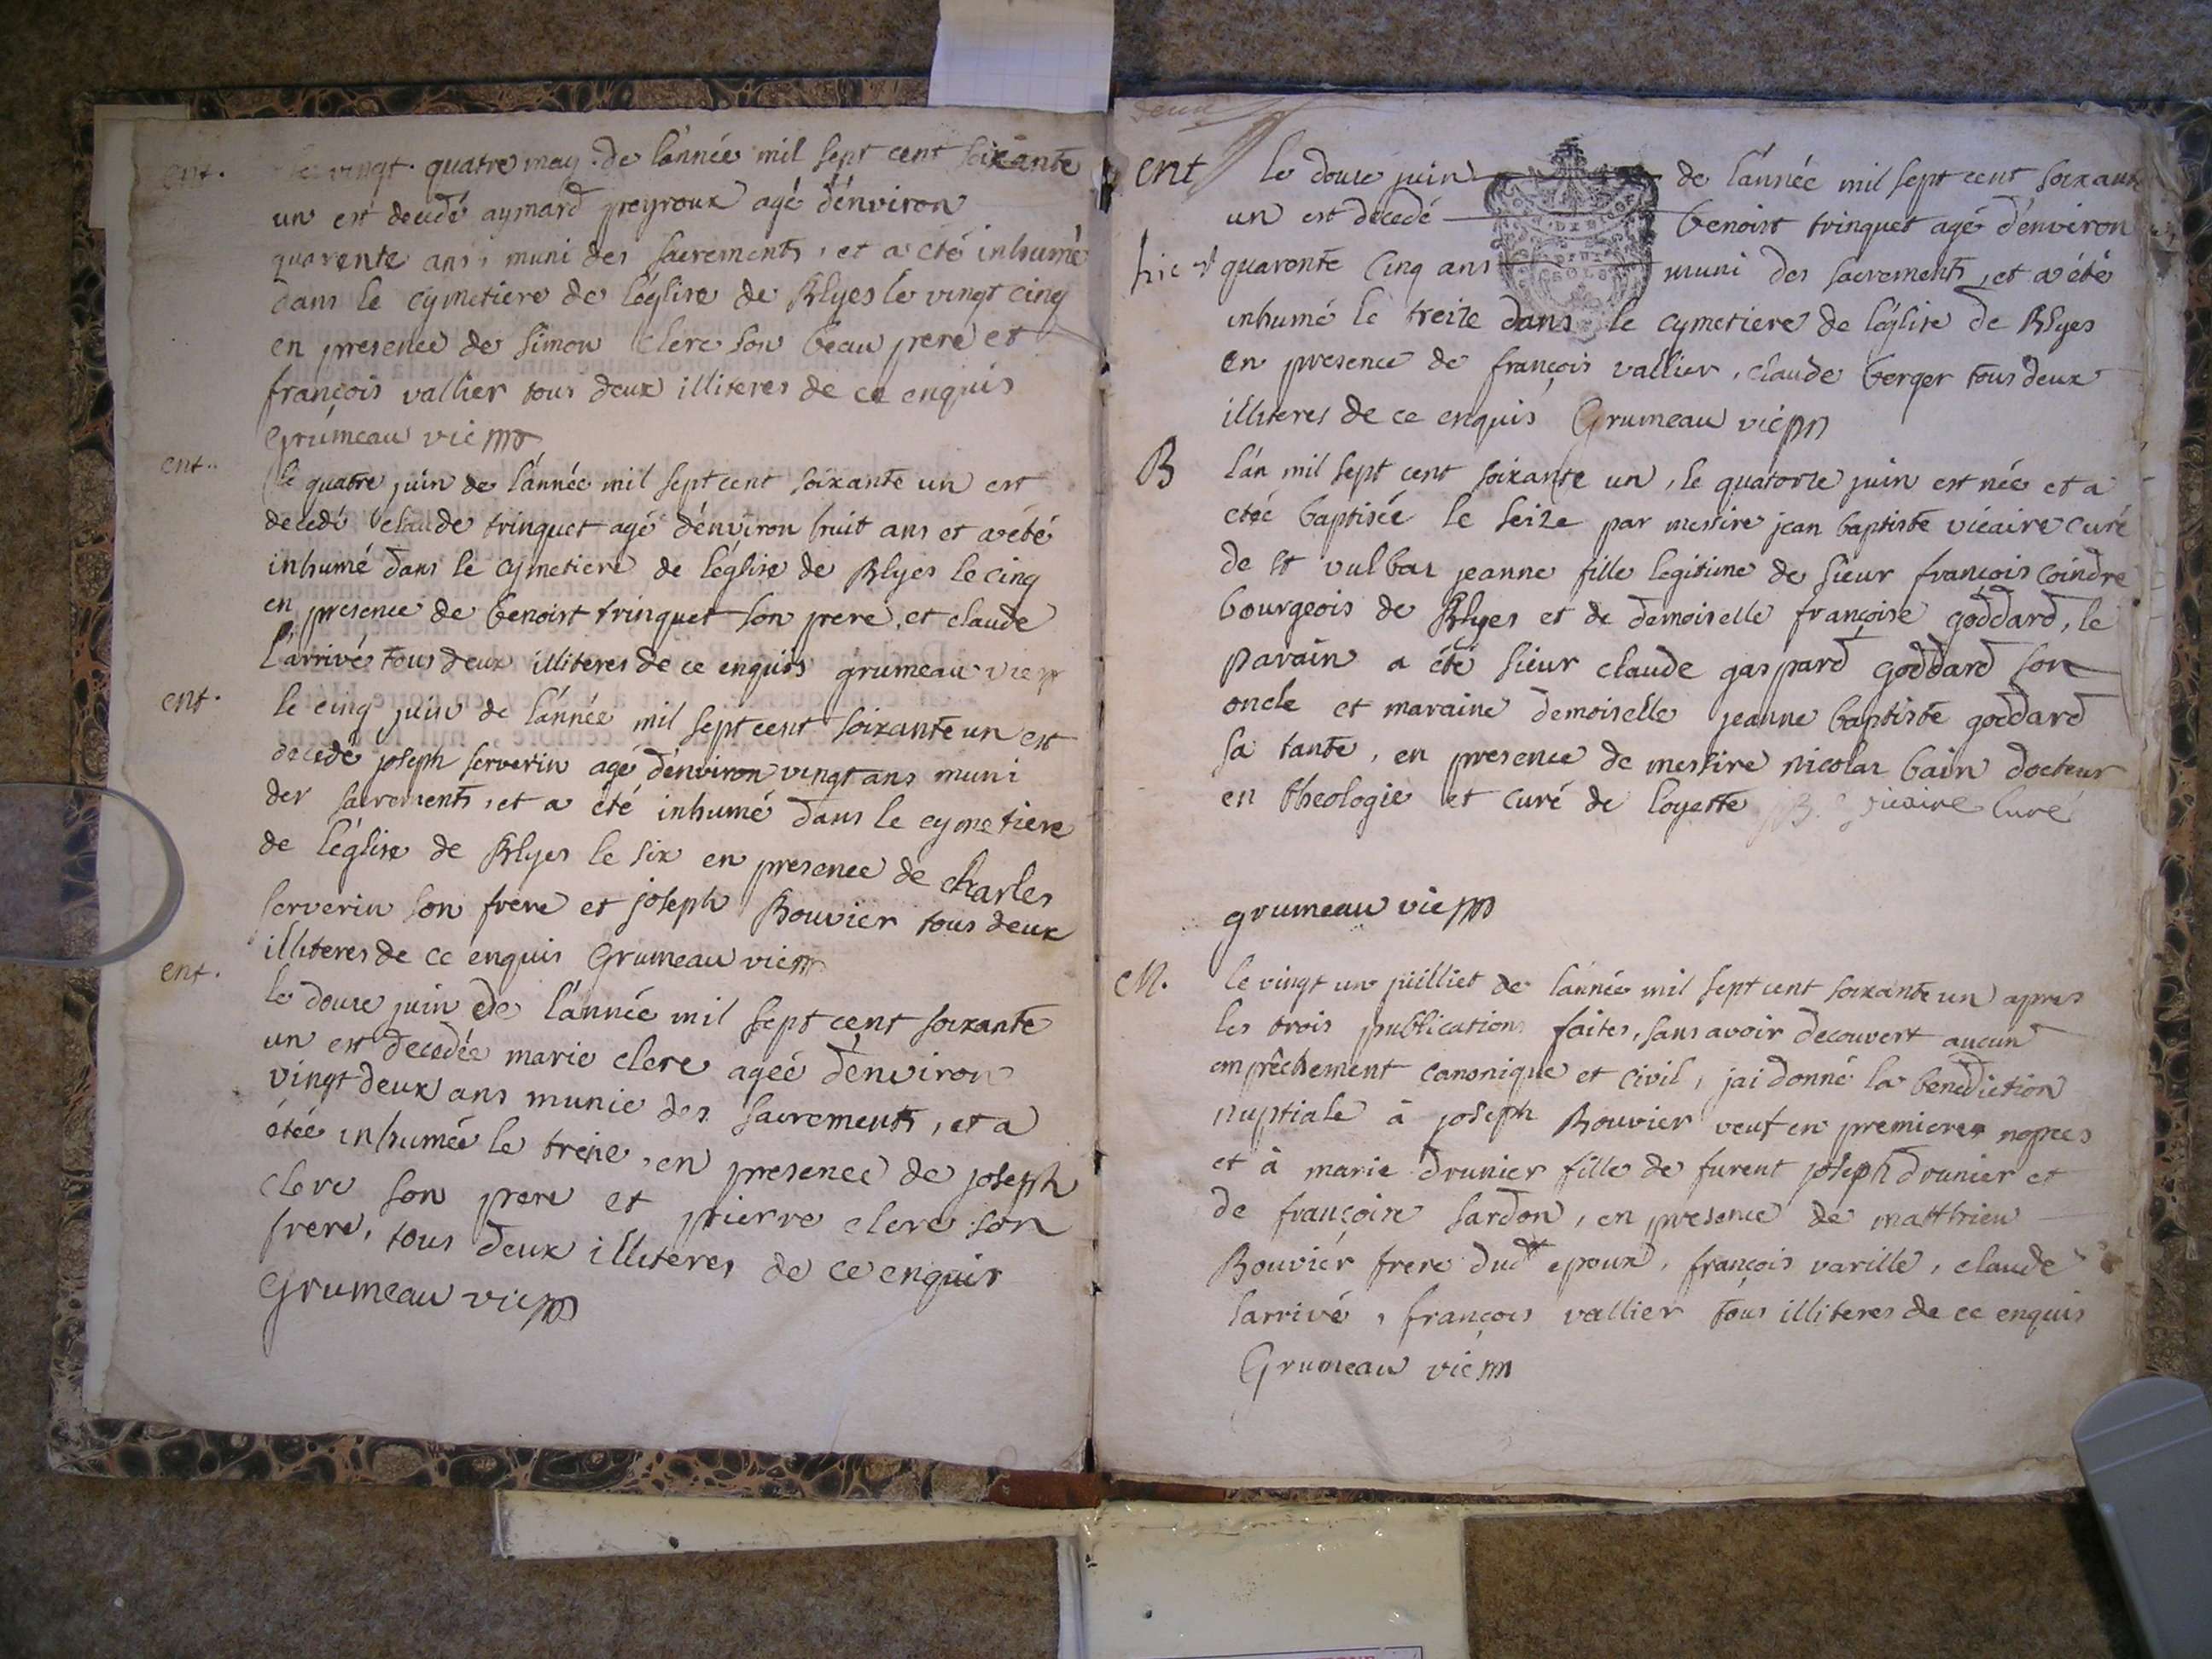 ent. le vingt quatre may de l'année mil sept cent soixante
un est decedé aymard preyroux agé d'environ
quarente ans, muni des sacrements, et a eté inhumé
dans le cymetiere de l'église de Blyes le vingt cinq
en presence de simon clerc son beau pere et
françois vallier tous deux illiteres de ce enquis
Grumeau vic
ent. le quatre juin de l'année mil sept cent soixante un est
decedé claude trinquet agé d'environ huit ans et a eté
inhumé dans le cymetiere de l'église de Blyes le cinq
en presence de benoist trinquet son pere, et claude
Larrivé tous deux illiteres de ce enquis grumeau vic
ent. le cinq juin de l'année mil sept cent soixante un est
decedé joseph serverin agé d'environ vingt ans muni
des sacrements, et a eté inhumé dans le cymetiere
de l'église de Blyes le six en presence de charles
serverin son frere et joseph Bouvier tous deux
illiteres de ce enquis Grumeau vic
ent. le douze juin de l'année mil sept cent soixante
un est decedée marie clerc agée d'environ
vingt deux ans munie des sacrements, et a
étée inhumée le treize, en presence de joseph
clerc son pere et pierre clerc son
frere, tous deux illiteres de ce enquis
Grumeau vic
deux
ent le douze juin de l'année mil sept cent soixante
un est decedé benoist trinquet agé d'environ
quarente cinq ans muni des sacrements, et a été
inhumé le treize dans le cymetiere de l'église de Blyes
en presence de françois vallier, claude berger tous deux
illiteres de ce enquis Grumeau vic
B l'an mil sept cent soixante un, le quatorze juin est née et a
etée baptisée le seize par messire jean baptiste vicaire curé
de st vulbaz jeanne fille legitime de sieur françois coindre
bourgeois de Blyes et de demoiselle françoise goddard, le
parain a été sieur claude gaspard goddard son
oncle et maraine demoiselle jeanne baptiste goddard
sa tante, en presence de messire nicolas bain docteur
en theologie et curé de loyette vicaire curé
grumeau vic
M. le vingt un juilliet de l'année mil sept cent soixante un apres
les trois publications faites, sans avoir decouvert aucun
emprêchement canonique et civil, jai donné la benediction
nuptiale à joseph Bouvier veuf en premieres nopces
et à marie drunier fille de furent joseph drunier et
de françoise sardon, en presence de matthieu
Bouvier frere dudt epoux, françois varille, claude
larrivé, françois vallier tous illiteres de ce enquis
Grumeau vic